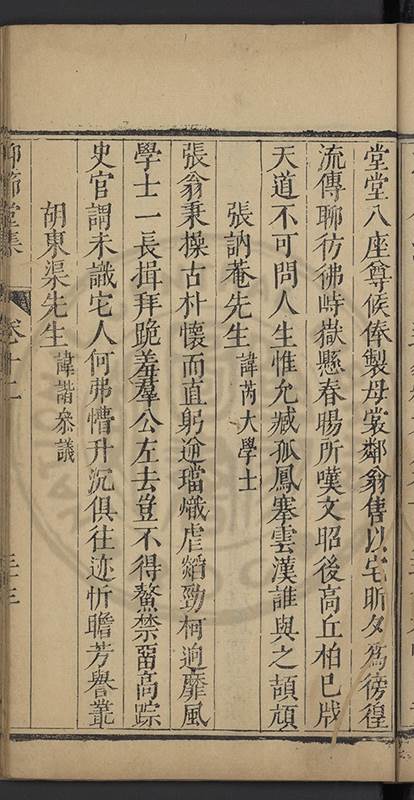 堂堂八座尊候俸製母裳鄰翁售以宅昕夕為徬徨
流傳聊彷彿峙嶽懸春暘所嘆文昭後高丘柏已戕
天道不可問人生惟允臧孤鳳搴雲漢誰與之頡頏
張訥菴先生諱芮大學士
張翁秉操古朴懷而直躬逆璫熾虐熖勁柯逈靡風
學士一長揖拜跪羞羣公左去豈不得鰲禁畱高踪
史官謂未識宅人何弗懵升沉俱往迹忻瞻芳譽叢
胡東渠先生諱諧叅議
仰節堂集
卷十二
三十三